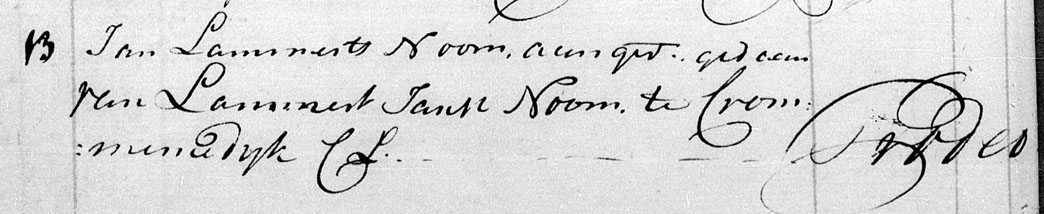 13 Jan Lammerts Noom. aengev: gedaen
van Lammert Jansz Noom. te Crom:
:menedyk CL. Pro deo